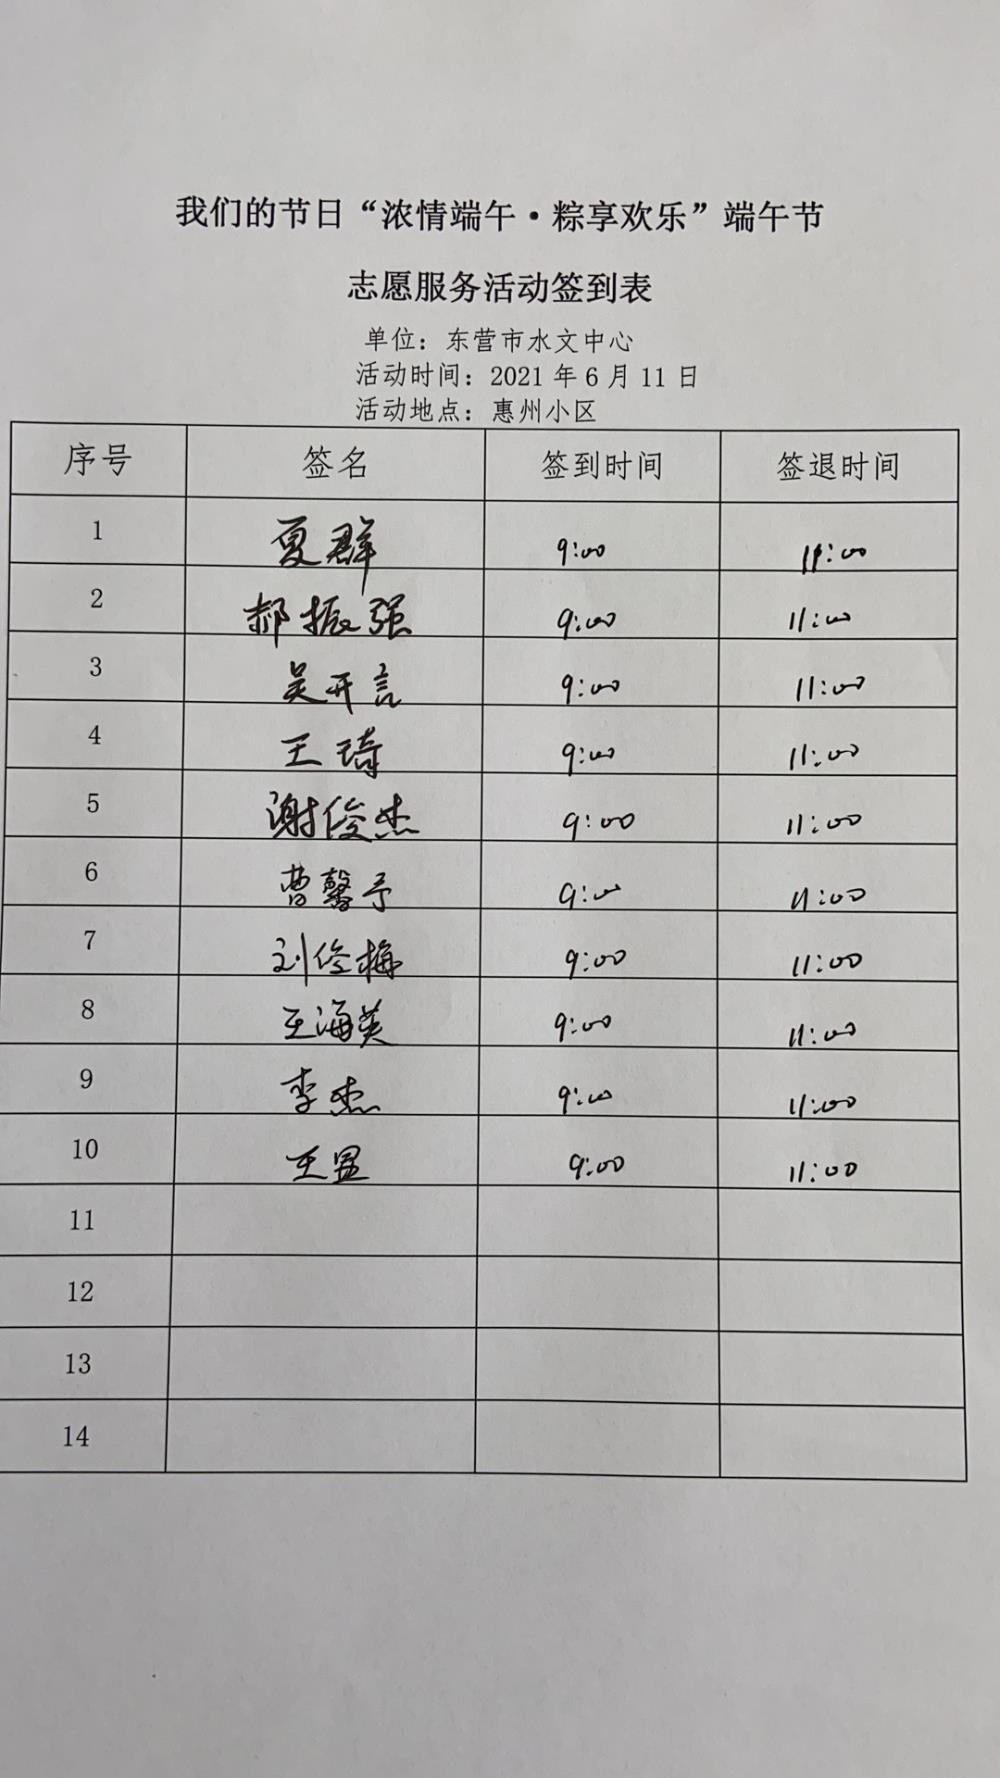 我们的节日“浓情端午·粽享欢乐”端午节
志愿服务活动签到表
单位：东营市水文中心
活动时间：2021 年 6 月 11 日
活动地点：惠州小区
序号 签名 签到时间 签退时间
1 夏群 9:00 11:00
2 郝振强 9:00 11:00
3 吴开言 9:00 11:00
4 王琦 9:00 11:00
5 谢俊杰 9:00 11:00
6 曹馨予 9:00 11:00
7 刘俊梅 9:00 11:00
8 王海英 9:00 11:00
9 李杰 9:00 11:00
10 王 9:00 11:00
11
12
13
14